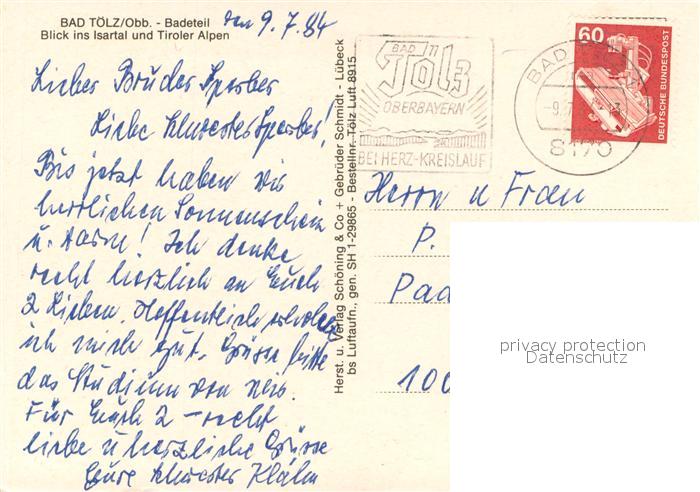 BAD TÖLZ/Obb. - Badeteil
Blick ins Isartal und Tiroler Alpen
den 9.7.84
Lieber Bruder Sperber
Liebe Schwester Sperber!
Bis jetzt haben wir
herrlichen Sonnenschein
u. warm! Ich denke
recht herzlich an Euch
2 Lieben. Hoffentlich erhole
ich mich gut. Grüsse bitte
das Studium von mir.
Für Euch 2 - recht
liebe u herzliche Grüsse
Eure Schwester
Herst. u. Verlag Schöning & Co + Gebrüder Schmidt - Lübeck
bs Luftaufn., gen. SH 1-29665 - Bestellnr. Tölz Luft 8915
BAD TÖLZ
OBERBAYERN
BEI HERZ-KREISLAUF
BAD
8170
60
DEUTSCHE BUNDESPOST
Herrn u Frau
P.
Pad
100
privacy protection
Datenschutz